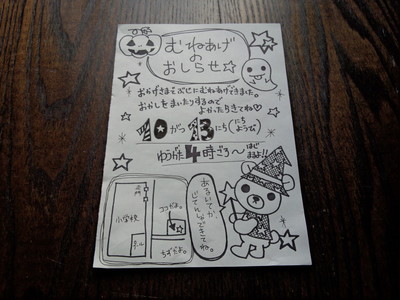 むねあげ
の
おしらせ☆
おかげさまで ぶじに むねあげできました。
おかしをまいたりするので
よかったらきてね♡
10がつ13にち(にちようび)
ゆうがた4時ごろ〜はじまるよ!!
門
小学校
ココだよ。
ちずだよ。
あるいてか、
じてんしゃできてね。